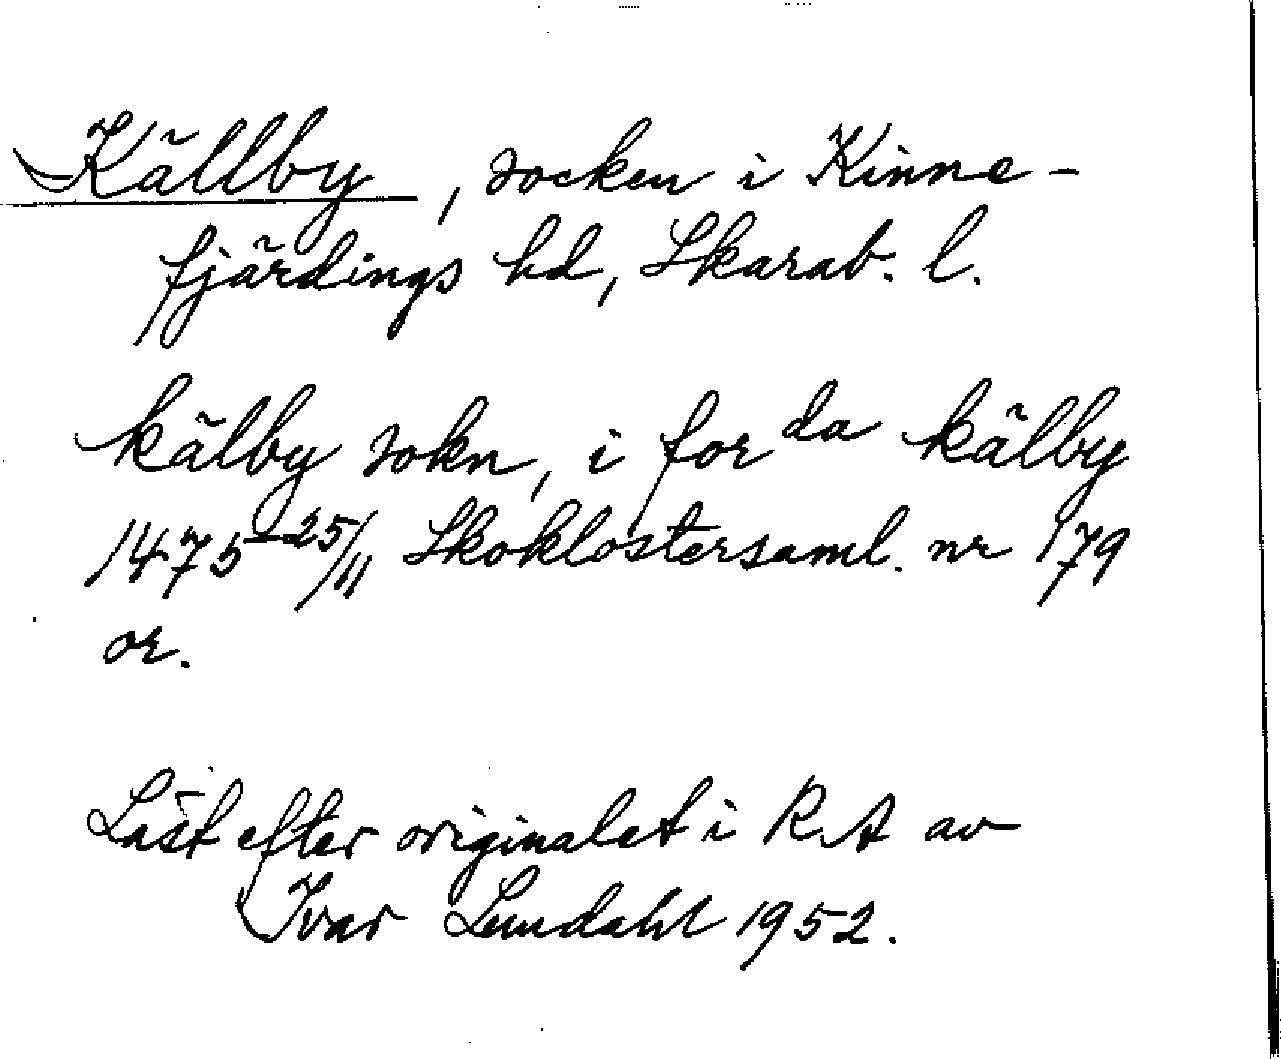 Källby, socken i Kinne-
fjärdings hd, Skarab. l.
kälby sokn, i for da kälby
1475 25/11 Skoklostersaml. nr 179
or.
Läst efter originalet i RA av
Ivar Lundahl 1952.